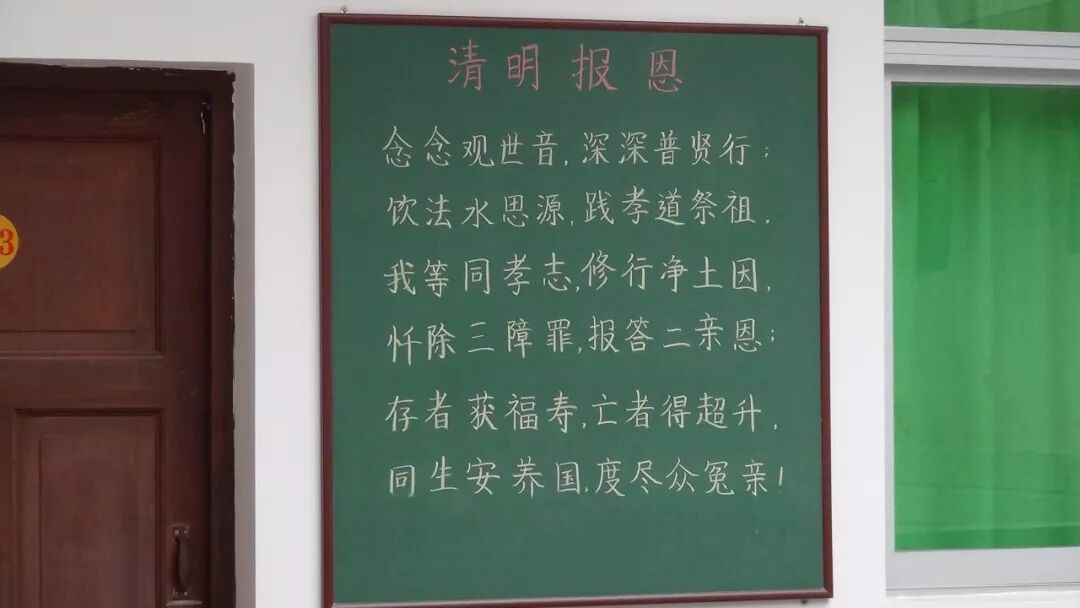 清明报恩
念念观世音,深深普贤行;
饮法水思源,践孝道祭祖.
我等同孝志,修行净土因,
忏除三障罪,报答二亲恩;
存者获福寿,亡者得超升,
同生安养国,度尽众冤亲!
3